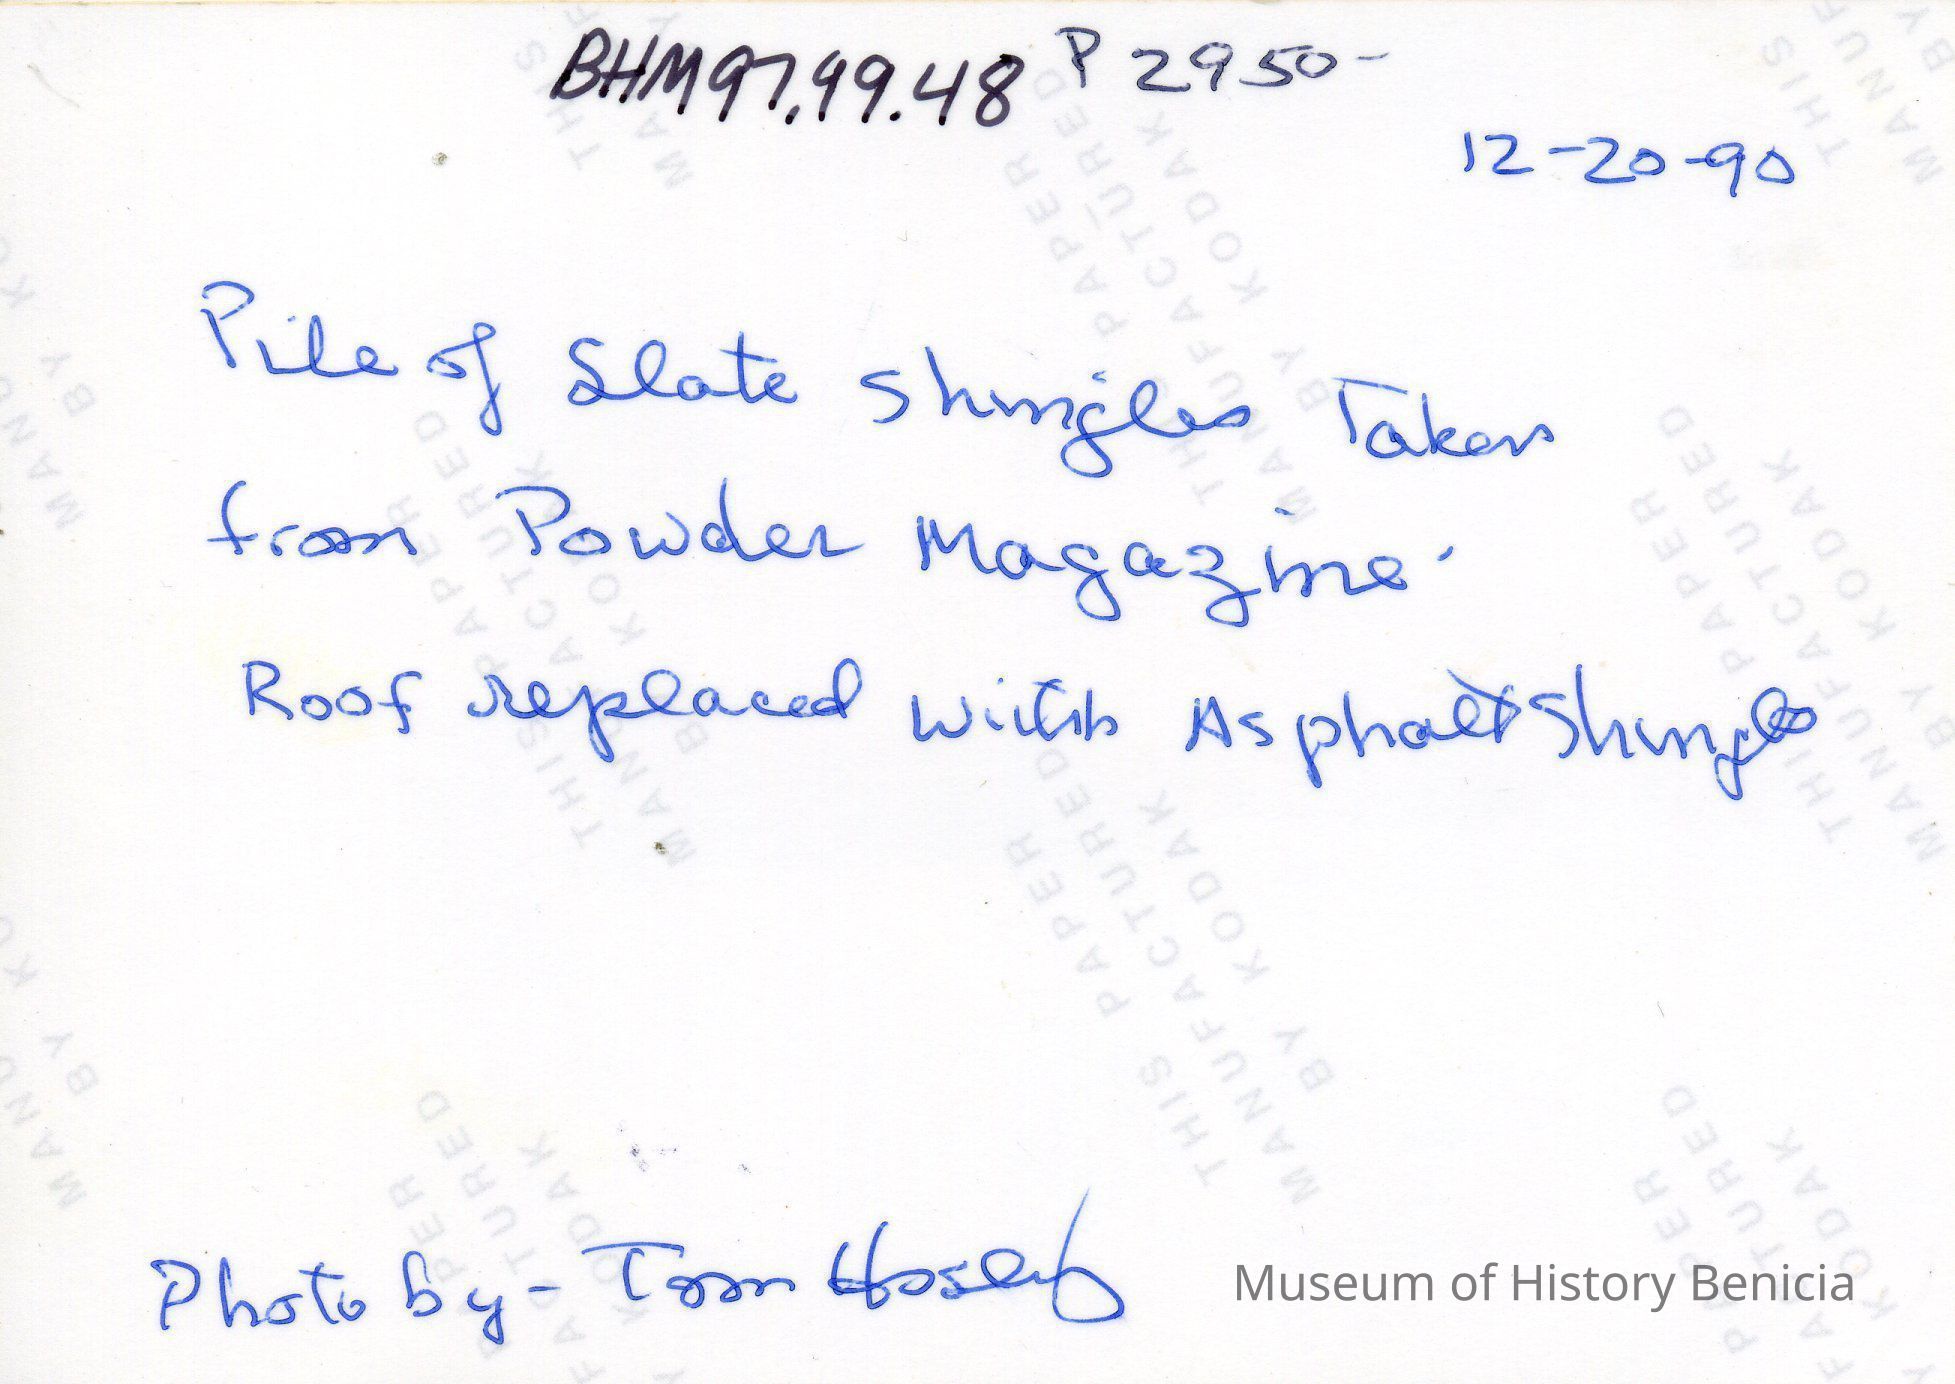 BHM97.99.48 P 2950-
12-20-90
Pile of Slate Shingles Taken
from Powder Magazine.
Roof replaced with Asphalt Shingles
Photo by - Tom
Museum of History Benicia
THIS PAPER
MANUFACTURED
BY KODAK